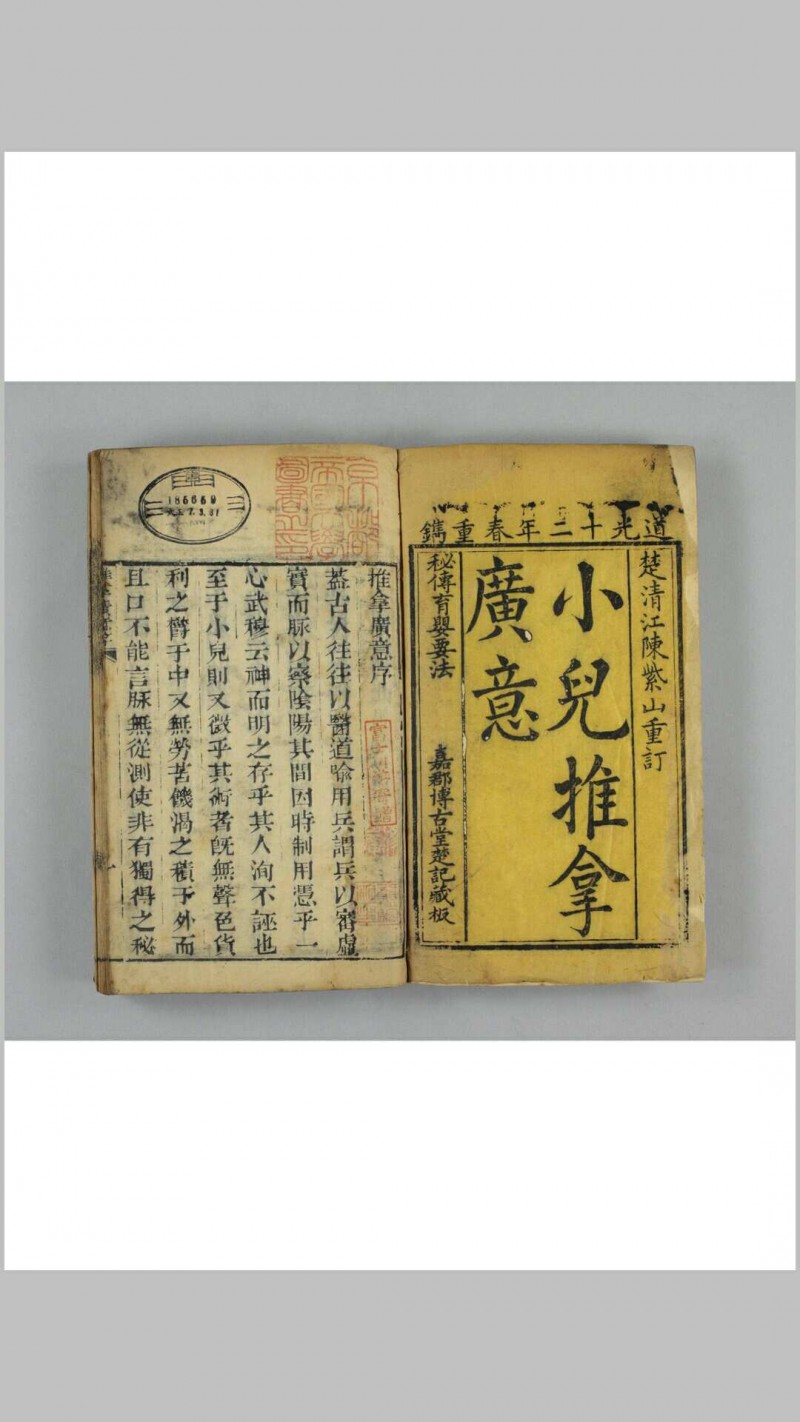 道光十二年春重鐫
楚清江陳紫山重訂
小兒推拿
廣意
秘傳育嬰要法
嘉郡博古堂楚記藏板
推拿廣意序
葢古人往往以醫道喻用兵謂兵以審虛
實而脉以察陰陽其間因時制用憑乎一
心武穆云神而明之存乎其人洵不誣也
至于小兒則又微乎其術者旣無聲色貨
利之欝于中又無勞苦饑渴之積于外而
且口不能言脉無從測使非有獨得之秘
186669